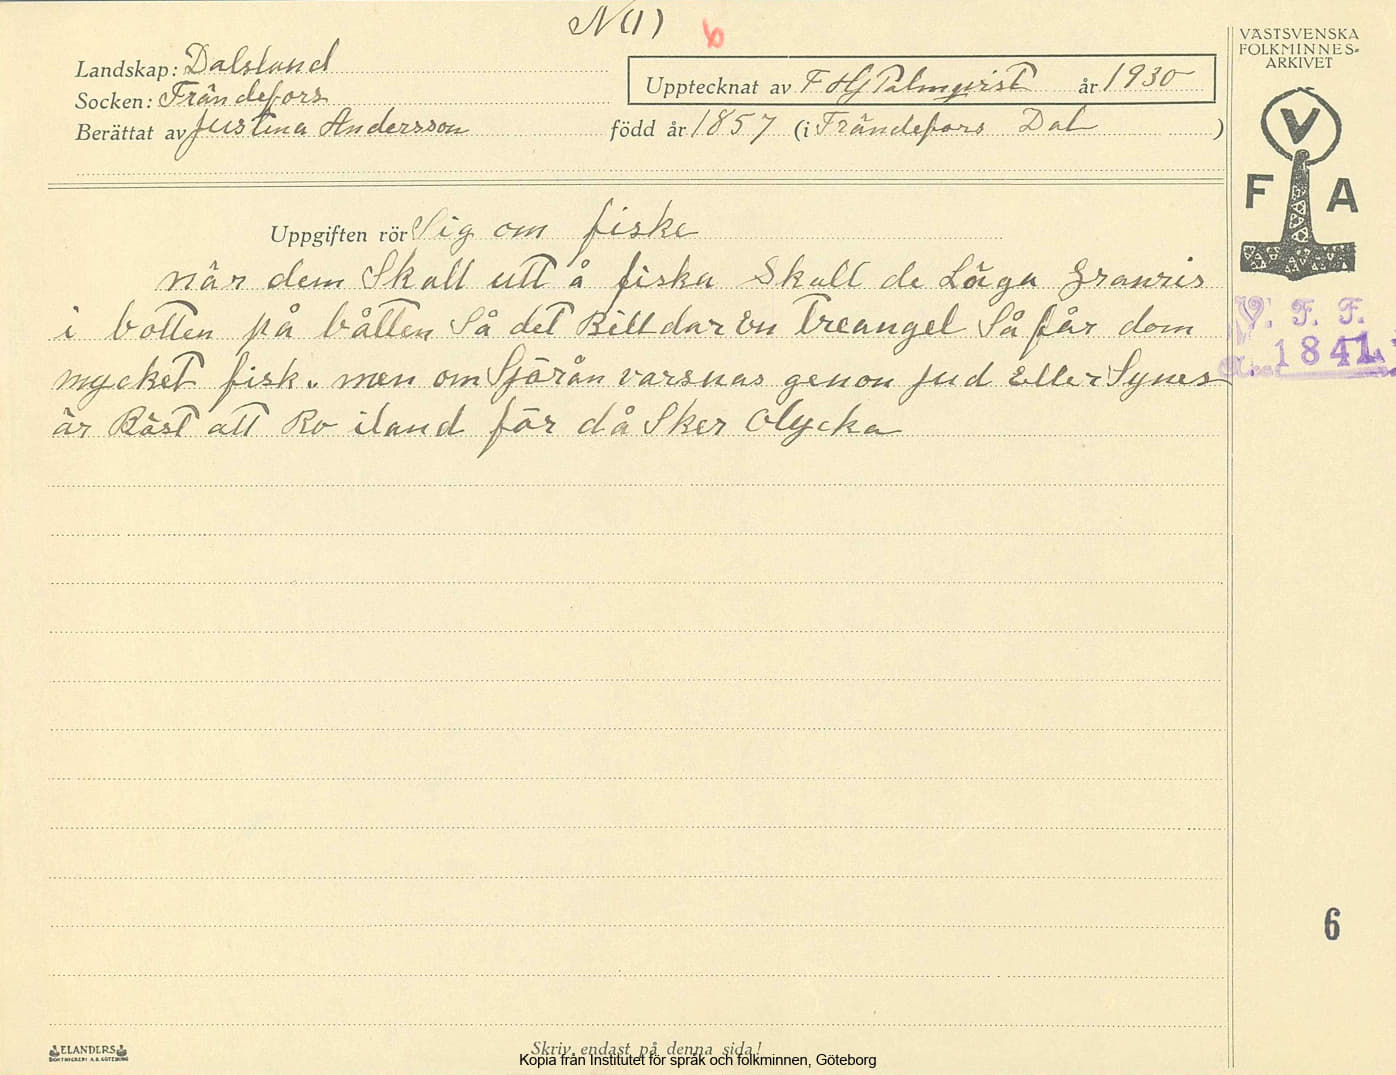 N(1) 6
VÄSTSVENSKA
FOLKMINNES-
ARKIVET
Landskap: Dalsland
Socken: Frändefors
Upptecknat av F Hj Palmqvist år 1930
Berättat av Justina Andersson född år 1857 (i Frändefors Dal )
V
F A
Uppgiften rör Sig om fiske
när dem Skall utt å fiska Skall de Läga Granris
i botten på båtten Så det Billdar En treangel Så får dom
V. F. F.
mycket fisk. men om Sjörån varsnas genon jud Eller Synes
1841
är Bäst att Ro iland för då Sker Olycka
6
ELANDERS
BOKTRYCKERI A.B. GÖTEBORG
Skriv endast på denna sida!
Kopia från Institutet för språk och folkminnen, Göteborg